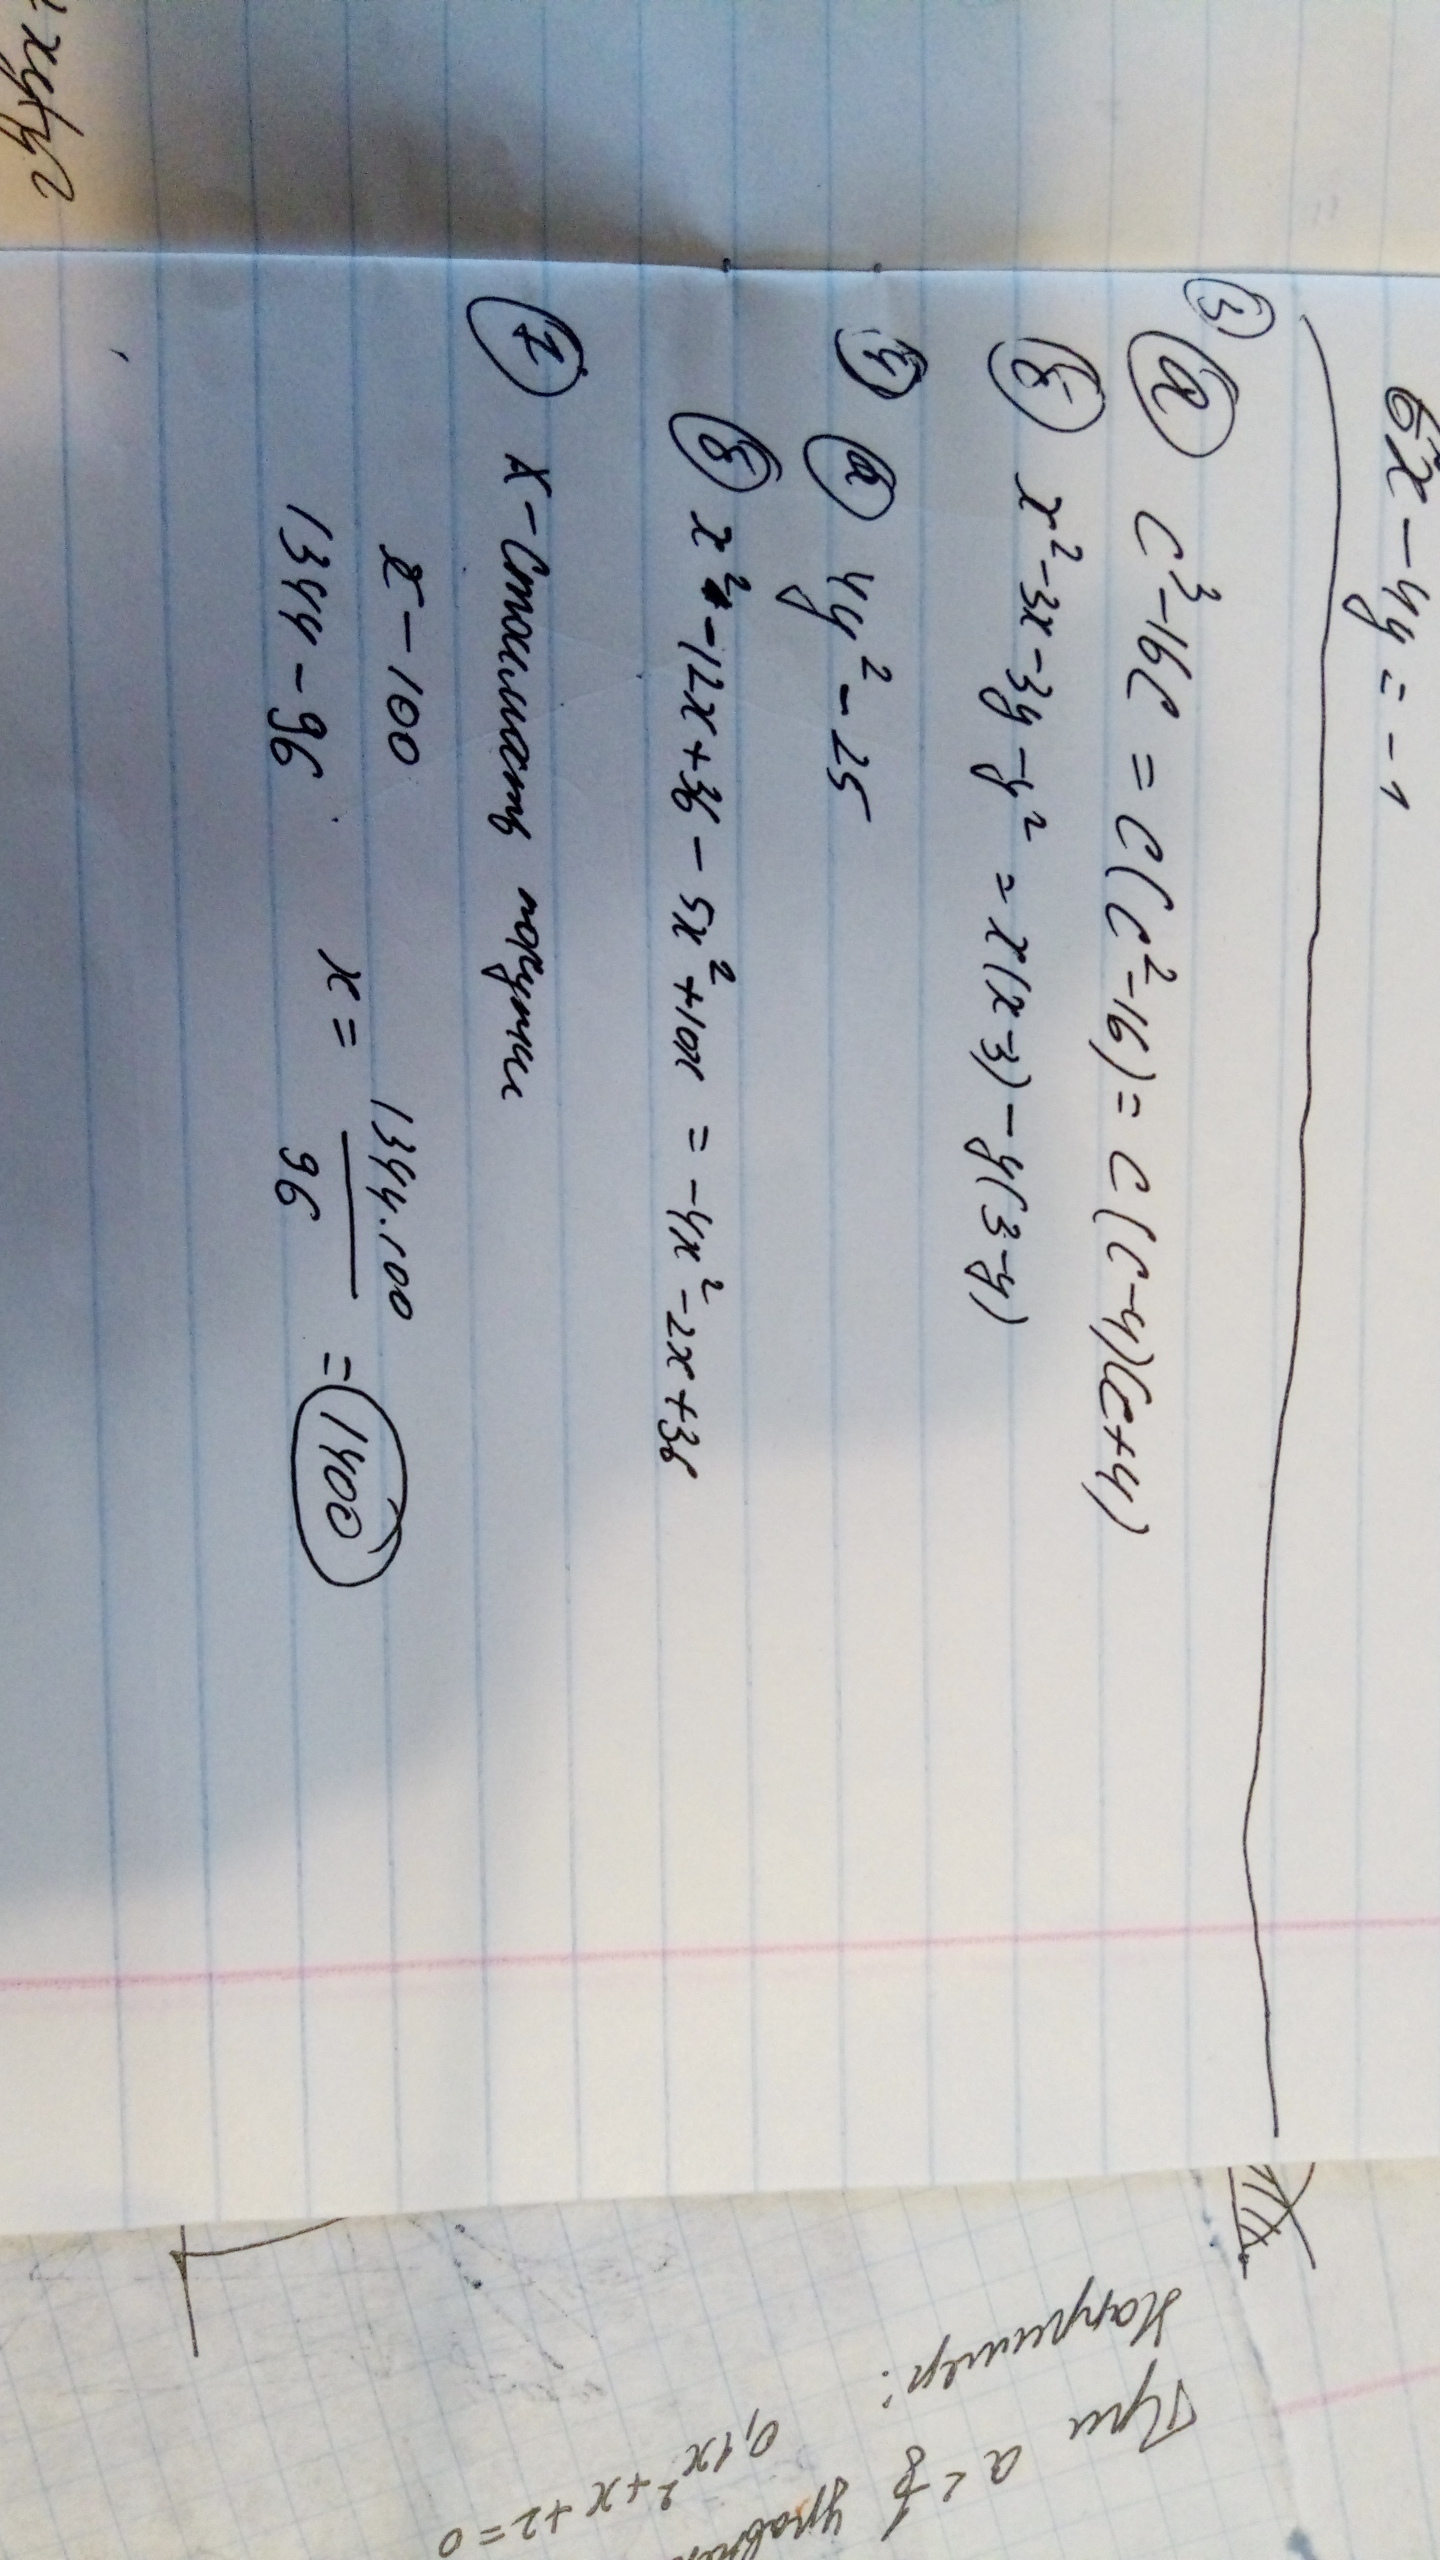 6x - 4y = -1
③ ⓐ c³ - 16c = c(c² - 16) = c(c-4)(c+4)
б x² - 3x - 3y - y² = x(x-3) - y(3-y)
④ ⓐ 4y² - 25
б x² - 12x + 36 - 5x² + 10x = -4x² - 2x + 36
⑦ x - Стоимость покупки
x - 100
1344 - 96
x = 1344·100 / 96 = 1400
Например:
При a < b
0,1x² + x + 2 = 0